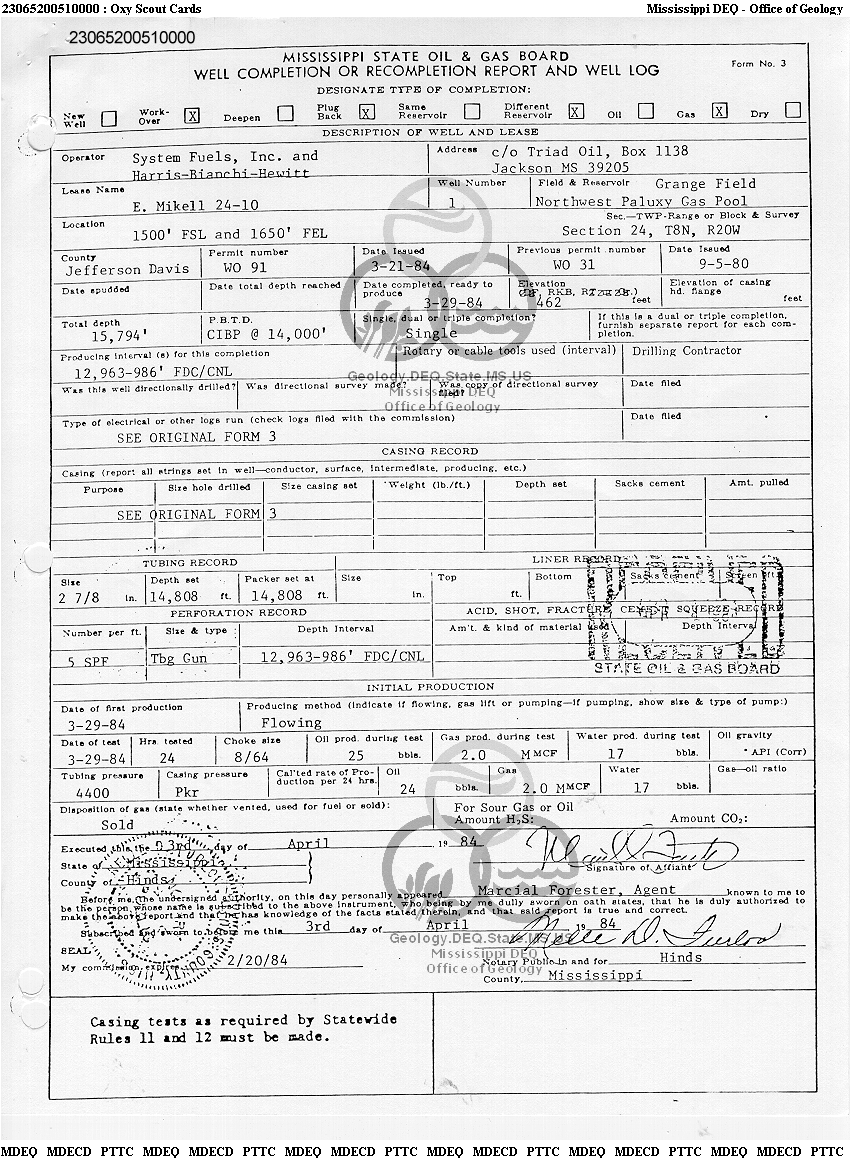 23065200510000 : Oxy Scout Cards Mississippi DEQ - Office of Geology
23065200510000
MISSISSIPPI STATE OIL & GAS BOARD
WELL COMPLETION OR RECOMPLETION REPORT AND WELL LOG Form No. 3
DESIGNATE TYPE OF COMPLETION:
New Well Work-Over X Deepen Plug Back X Same Reservoir Different Reservoir X Oil Gas X Dry
DESCRIPTION OF WELL AND LEASE
Operator System Fuels, Inc. and Address c/o Triad Oil, Box 1138
Harris-Bianchi-Hewitt Jackson MS 39205
Lease Name Well Number Field & Reservoir Grange Field
E. Mikell 24-10 1 Northwest Paluxy Gas Pool
Location Sec.—TWP-Range or Block & Survey
1500' FSL and 1650' FEL Section 24, T8N, R20W
County Permit number Date Issued Previous permit number Date Issued
Jefferson Davis WO 91 3-21-84 WO 31 9-5-80
Date spudded Date total depth reached Date completed, ready to produce Elevation Elevation of casing hd. flange
3-29-84 462 feet feet
Total depth P.B.T.D. Single, dual or triple completion? If this is a dual or triple completion, furnish separate report for each completion.
15,794' CIBP @ 14,000' Single
Producing interval (s) for this completion Rotary or cable tools used (interval) Drilling Contractor
12,963-986' FDC/CNL
Geology.DEQ.State.MS.US
Was this well directionally drilled? Was directional survey made? Was copy of directional survey filed? Date filed
Mississippi DEQ
Office of Geology
Type of electrical or other logs run (check logs filed with the commission) Date filed
SEE ORIGINAL FORM 3
CASING RECORD
Casing (report all strings set in well—conductor, surface, intermediate, producing, etc.)
Purpose Size hole drilled Size casing set Weight (lb./ft.) Depth set Sacks cement Amt. pulled
SEE ORIGINAL FORM 3
TUBING RECORD LINER RECORD
Size Depth set Packer set at Size Top Bottom Sacks cement Screen
2 7/8 in. 14,808 ft. 14,808 ft. in. ft.
PERFORATION RECORD ACID, SHOT, FRACTURE, CEMENT SQUEEZE RECORD
Number per ft. Size & type Depth Interval Am't. & kind of material used Depth Interval
5 SPF Tbg Gun 12,963-986' FDC/CNL
STATE OIL & GAS BOARD
INITIAL PRODUCTION
Date of first production Producing method (indicate if flowing, gas lift or pumping—if pumping, show size & type of pump:)
3-29-84 Flowing
Date of test Hrs. tested Choke size Oil prod. during test Gas prod. during test Water prod. during test Oil gravity
3-29-84 24 8/64 25 bbls. 2.0 MMCF 17 bbls. ° API (Corr)
Tubing pressure Casing pressure Cal'ted rate of Production per 24 hrs. Oil Gas Water Gas—oil ratio
4400 Pkr 24 bbls. 2.0 MMCF 17 bbls.
Disposition of gas (state whether vented, used for fuel or sold): For Sour Gas or Oil
Sold Amount H2S: Amount CO2:
Executed this the 3rd day of April 19 84
State of Mississippi Signature of Affiant
County of Hinds
Before me, the undersigned authority, on this day personally appeared Marcial Forester, Agent known to me to
be the person whose name is subscribed to the above instrument, who being by me dully sworn on oath states, that he is duly authorized to
make the above report and that he has knowledge of the facts stated therein, and that said report is true and correct.
Subscribed and sworn to before me this 3rd day of April 19 84
Geology.DEQ.State.MS.US
SEAL Mississippi DEQ Notary Public in and for Hinds
My commission expires 2/20/84 Office of Geology
County, Mississippi
Casing tests as required by Statewide
Rules 11 and 12 must be made.
MDEQ MDECD PTTC MDEQ MDECD PTTC MDEQ MDECD PTTC MDEQ MDECD PTTC MDEQ MDECD PTTC MDEQ MDECD PTTC